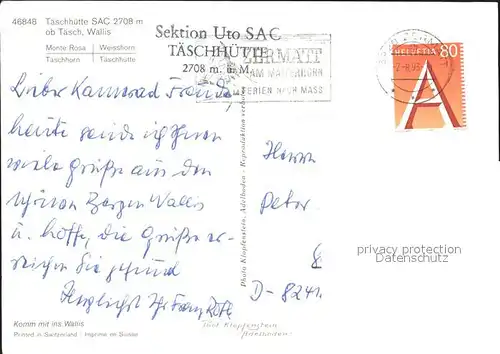 46848 Täschhütte SAC 2708 m
ob Täsch, Wallis
Monte Rosa Weisshorn
Täschhorn Täschhütte
Sektion Uto SAC
TÄSCHHÜTTE
2708 m. ü. M.
ZERMATT
AM MATTERHORN
FERIEN NACH MASS
HELVETIA 80
A
Lieber Kamerad
heute sende ich Ihnen
viele Grüße aus den
schönen Bergen Wallis
u. hoffe, die Grüße er-
reichen Sie gesund
Herzlichst Ihr Franz Roth
Herrn
Peter
D-8241
Photo Klopfenstein, Adelboden - Reproduktion verboten
Photo Klopfenstein
Adelboden
privacy protection
Datenschutz
Komm mit ins Wallis
Printed in Switzerland Imprimé en Suisse